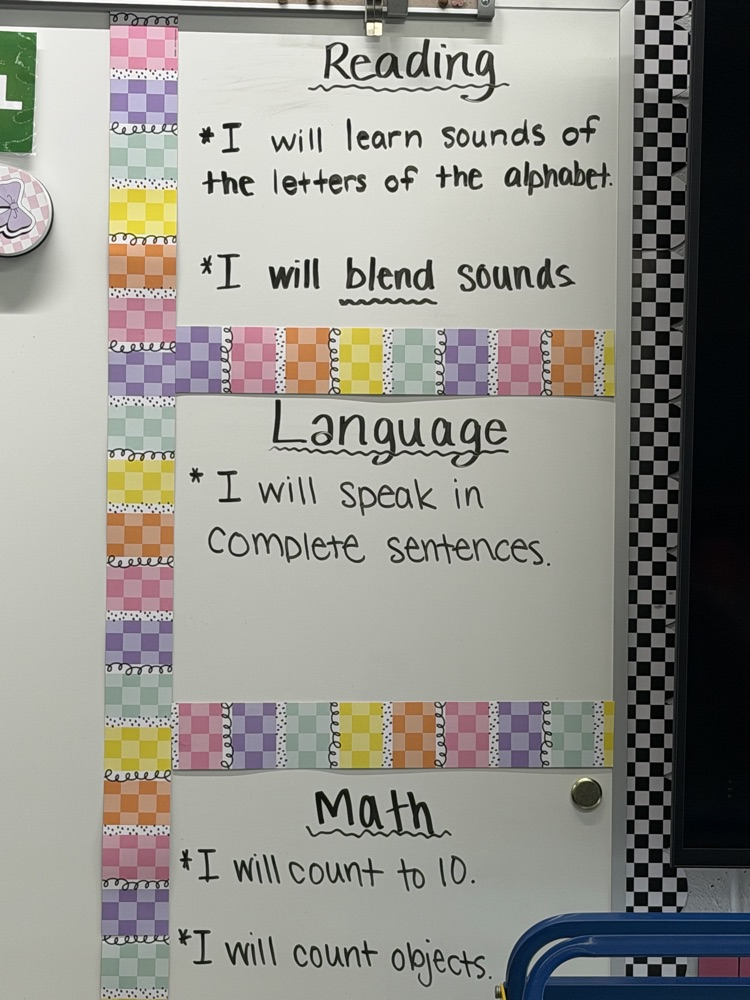 Reading
*I will learn sounds of
the letters of the alphabet.
*I will blend sounds
Language
* I will speak in
complete sentences.
Math
*I will count to 10.
*I will count objects.